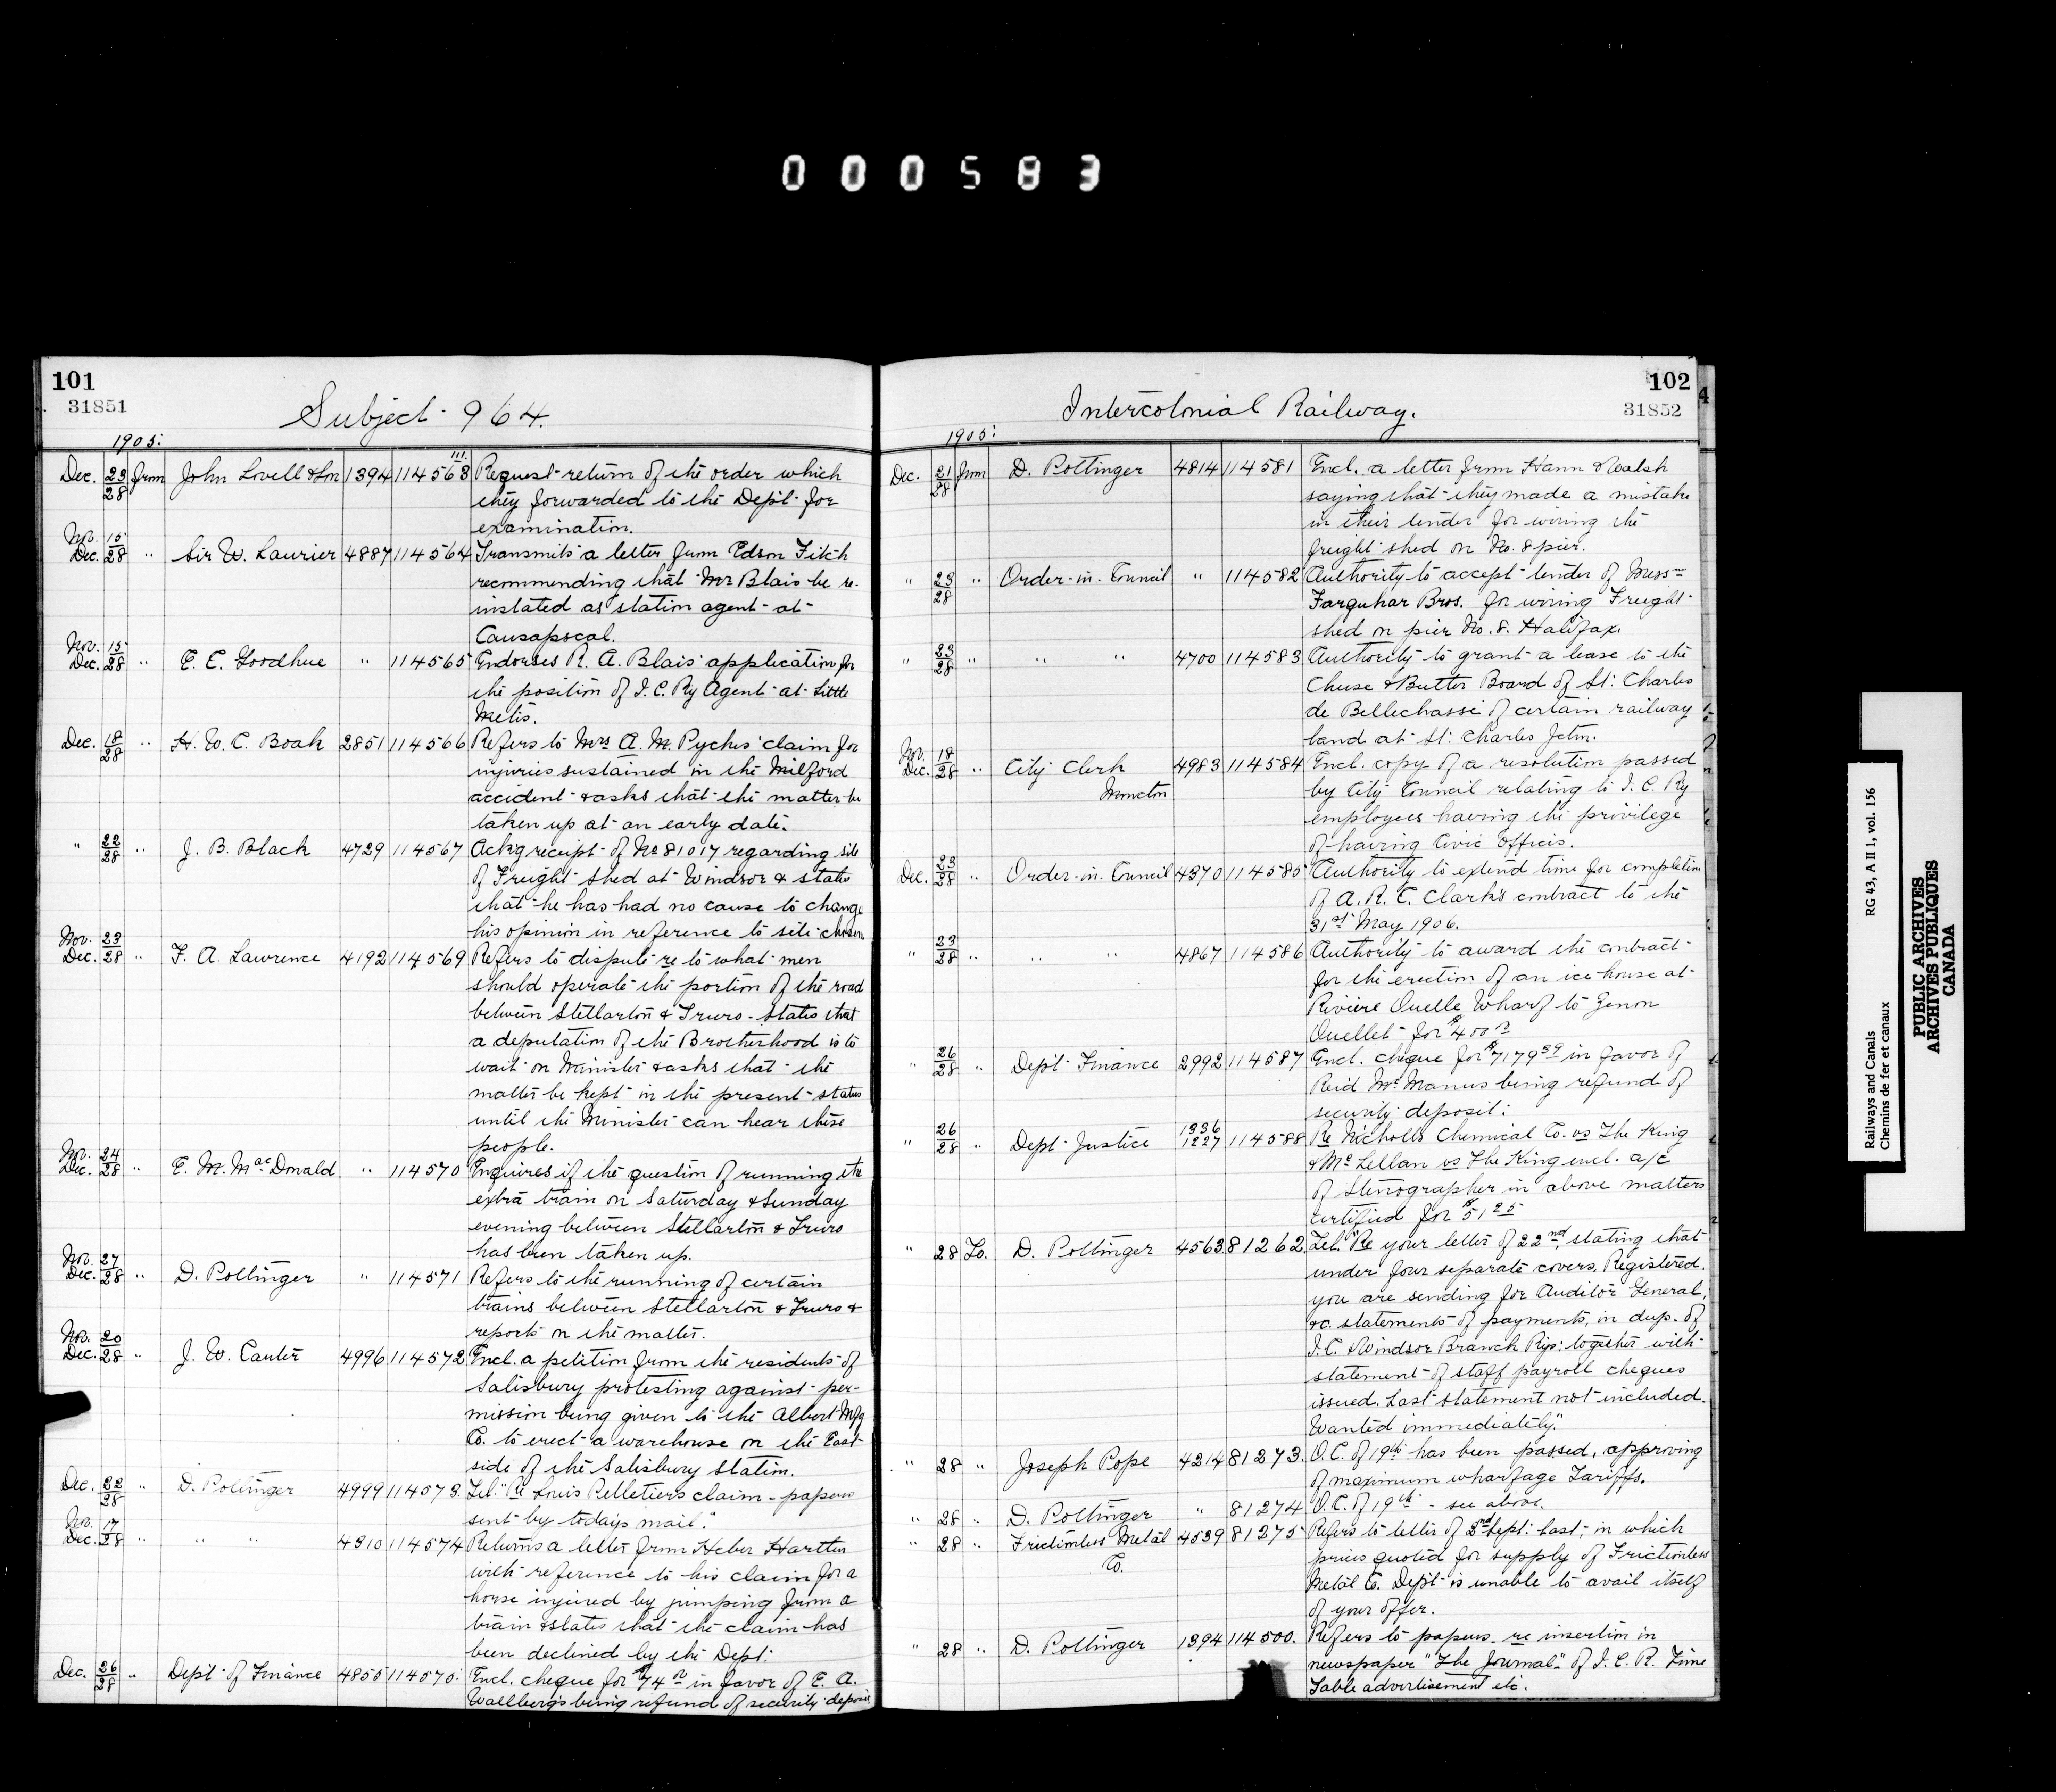 000583
101
31851
Subject 964.
1905.
Dec. 23/28 from John Lovell & Son 1394 114563 Request return of the order which
they forwarded to the Dept. for
examination.
Nov. 15
Dec. 28 " Sir W. Laurier 4887 114564 Transmits a letter from Edson Fitch
recommending that Mr Blais be re-
instated as station agent at
Causapscal.
Nov. 15
Dec. 28 " E. E. Goodhue " 114565 Endorses R. A. Blais' application for
the position of I. C. Ry Agent at Little
Metis.
Dec. 18/28 " H. W. C. Boak 2851 114566 Refers to Mrs A. M. Pyches' claim for
injuries sustained in the Milford
accident & asks that the matter be
taken up at an early date.
" 22/28 " J. B. Black 4729 114567 Ackg receipt of No 81017 regarding site
of Freight shed at Windsor & states
that he has had no cause to change
his opinion in reference to site chosen.
Nov. 23
Dec. 28 " F. A. Lawrence 4192 114569 Refers to dispute re to what men
should operate the portion of the road
between Stellarton & Truro - States that
a deputation of the Brotherhood is to
wait on Minister & asks that the
matter be kept in the present status
until the Minister can hear these
people.
Nov. 24
Dec. 28 " E. M. MacDonald " 114570 Enquires if the question of running the
extra train on Saturday & Sunday
evening between Stellarton & Truro
has been taken up.
Nov. 27
Dec. 28 " D. Pottinger " 114571 Refers to the running of certain
trains between Stellarton & Truro &
reports on the matter.
Nov. 20
Dec. 28 " J. W. Carter 4996 114572 Encl. a petition from the residents of
Salisbury protesting against per-
mission being given to the Albert Mfg
Co. to erect a warehouse on the East
side of the Salisbury Station.
Dec. 22/28 " D. Pottinger 4999 114573. Tel. "Re Louis Pelletiers claim - papers
sent by todays mail."
Nov. 17
Dec. 28 " " " 4310 114574 Returns a letter from Heber Hartlen
with reference to his claim for a
horse injured by jumping from a
train & states that the claim has
been declined by the Dept.
Dec. 26/28 " Dept. of Finance 4855 114570. Encl. cheque for $74.00 in favor of E. A.
Wallberg's being refund of security deposit
102
31852
Intercolonial Railway.
1905.
Dec. 21/28 from D. Pottinger 4814 114581 Encl. a letter from Hann & Walsh
saying that they made a mistake
in their tender for wiring the
freight shed on No. 8 pier.
" 23/28 " Order-in-Council " 114582 Authority to accept tender of Messrs
Farquhar Bros. for wiring Freight
shed on pier No. 8. Halifax.
" 23/28 " " " 4700 114583 Authority to grant a lease to the
Cheese & Butter Board of St. Charles
de Bellechasse of certain railway
land at St. Charles Jctn.
Nov. 18
Dec. 28 " City Clerk 4983 114584 Encl. copy of a resolution passed
Moncton by City Council relating to I. C. Ry
employees having the privilege
of having Civic Offices.
Dec. 23/28 " Order-in-Council 4370 114585 Authority to extend time for completion
of A. R. C. Clark's contract to the
31st May 1906.
" 23/28 " " " 4867 114586 Authority to award the contract
for the erection of an ice house at
Riviere Ouelle Wharf to Zenon
Ouellet for $400.00
" 26/28 " Dept. Finance 2992 114587 Encl. cheque for $7179.39 in favor of
Reid McManus being refund of
security deposit.
" 26/28 " Dept. Justice 1336 1227 114588 Re Nicholls Chemical Co. vs The King
& McLellan vs The King encl. a/c
of Stenographer in above matters
certified for $51.25
" 28 To. D. Pottinger 4563 81262. Tel. "Re your letter of 22nd, stating that
under four separate covers, Registered.
you are sending for Auditor General,
&c. statements of payments, in dup. of
I. C. & Windsor Branch Rys: together with
statement of staff payroll cheques
issued. Last statement not included.
Wanted immediately."
" 28 " Joseph Pope 4214 81273. O. C. of 19th has been passed, approving
of maximum wharfage Tariffs.
" 28 " D. Pottinger " 81274 O. C. of 19th - see above.
" 28 " Frictionless Metal 4539 81275 Refers to letter of 2nd Sept. last, in which
Co. prices quoted for supply of Frictionless
Metal Co. Dept. is unable to avail itself
of your offer.
" 28 " D. Pottinger 1394 114500. Refers to papers re insertion in
newspaper "The Journal" of I. C. R. Time
Table advertisement etc.
Railways and Canals RG 43, A II 1, vol. 156
Chemins de fer et canaux
PUBLIC ARCHIVES
ARCHIVES PUBLIQUES
CANADA